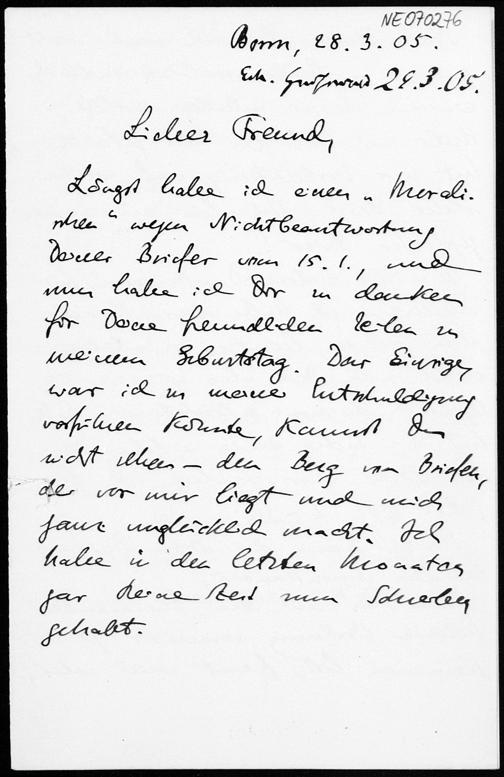 NE070276
Bonn, 28. 3. 05.
Eck. Greifswald 29.3.05.
Lieber Freund,
Längst habe ich einen „Morali-
schen“ wegen Nichtbeantwortung
Deines Briefes vom 15. 1., und
nun habe ich Dir zu danken
für Deine freundlichen Zeilen zu
meinem Geburtstag. Das Einzige,
was ich zu meiner Entschuldigung
vorführen könnte, kannst Du
nicht sehen – den Berg von Briefen,
der vor mir liegt und mich
ganz unglücklich macht. Ich
habe in den letzten Monaten
gar keine Zeit zum Schreiben
gehabt.